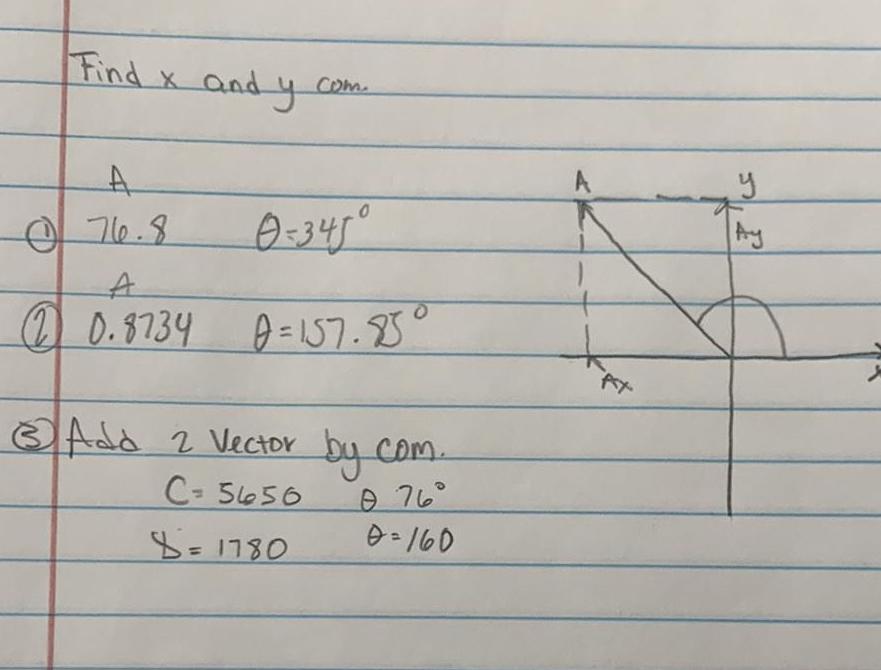 Find x and y com.
A
① 76.8 θ=345°
A
② 0.8734 θ=157.85°
③ Add 2 Vector by com.
C= 5650 θ 76°
= 1780 θ=160
A
y
Ay
Ax
x